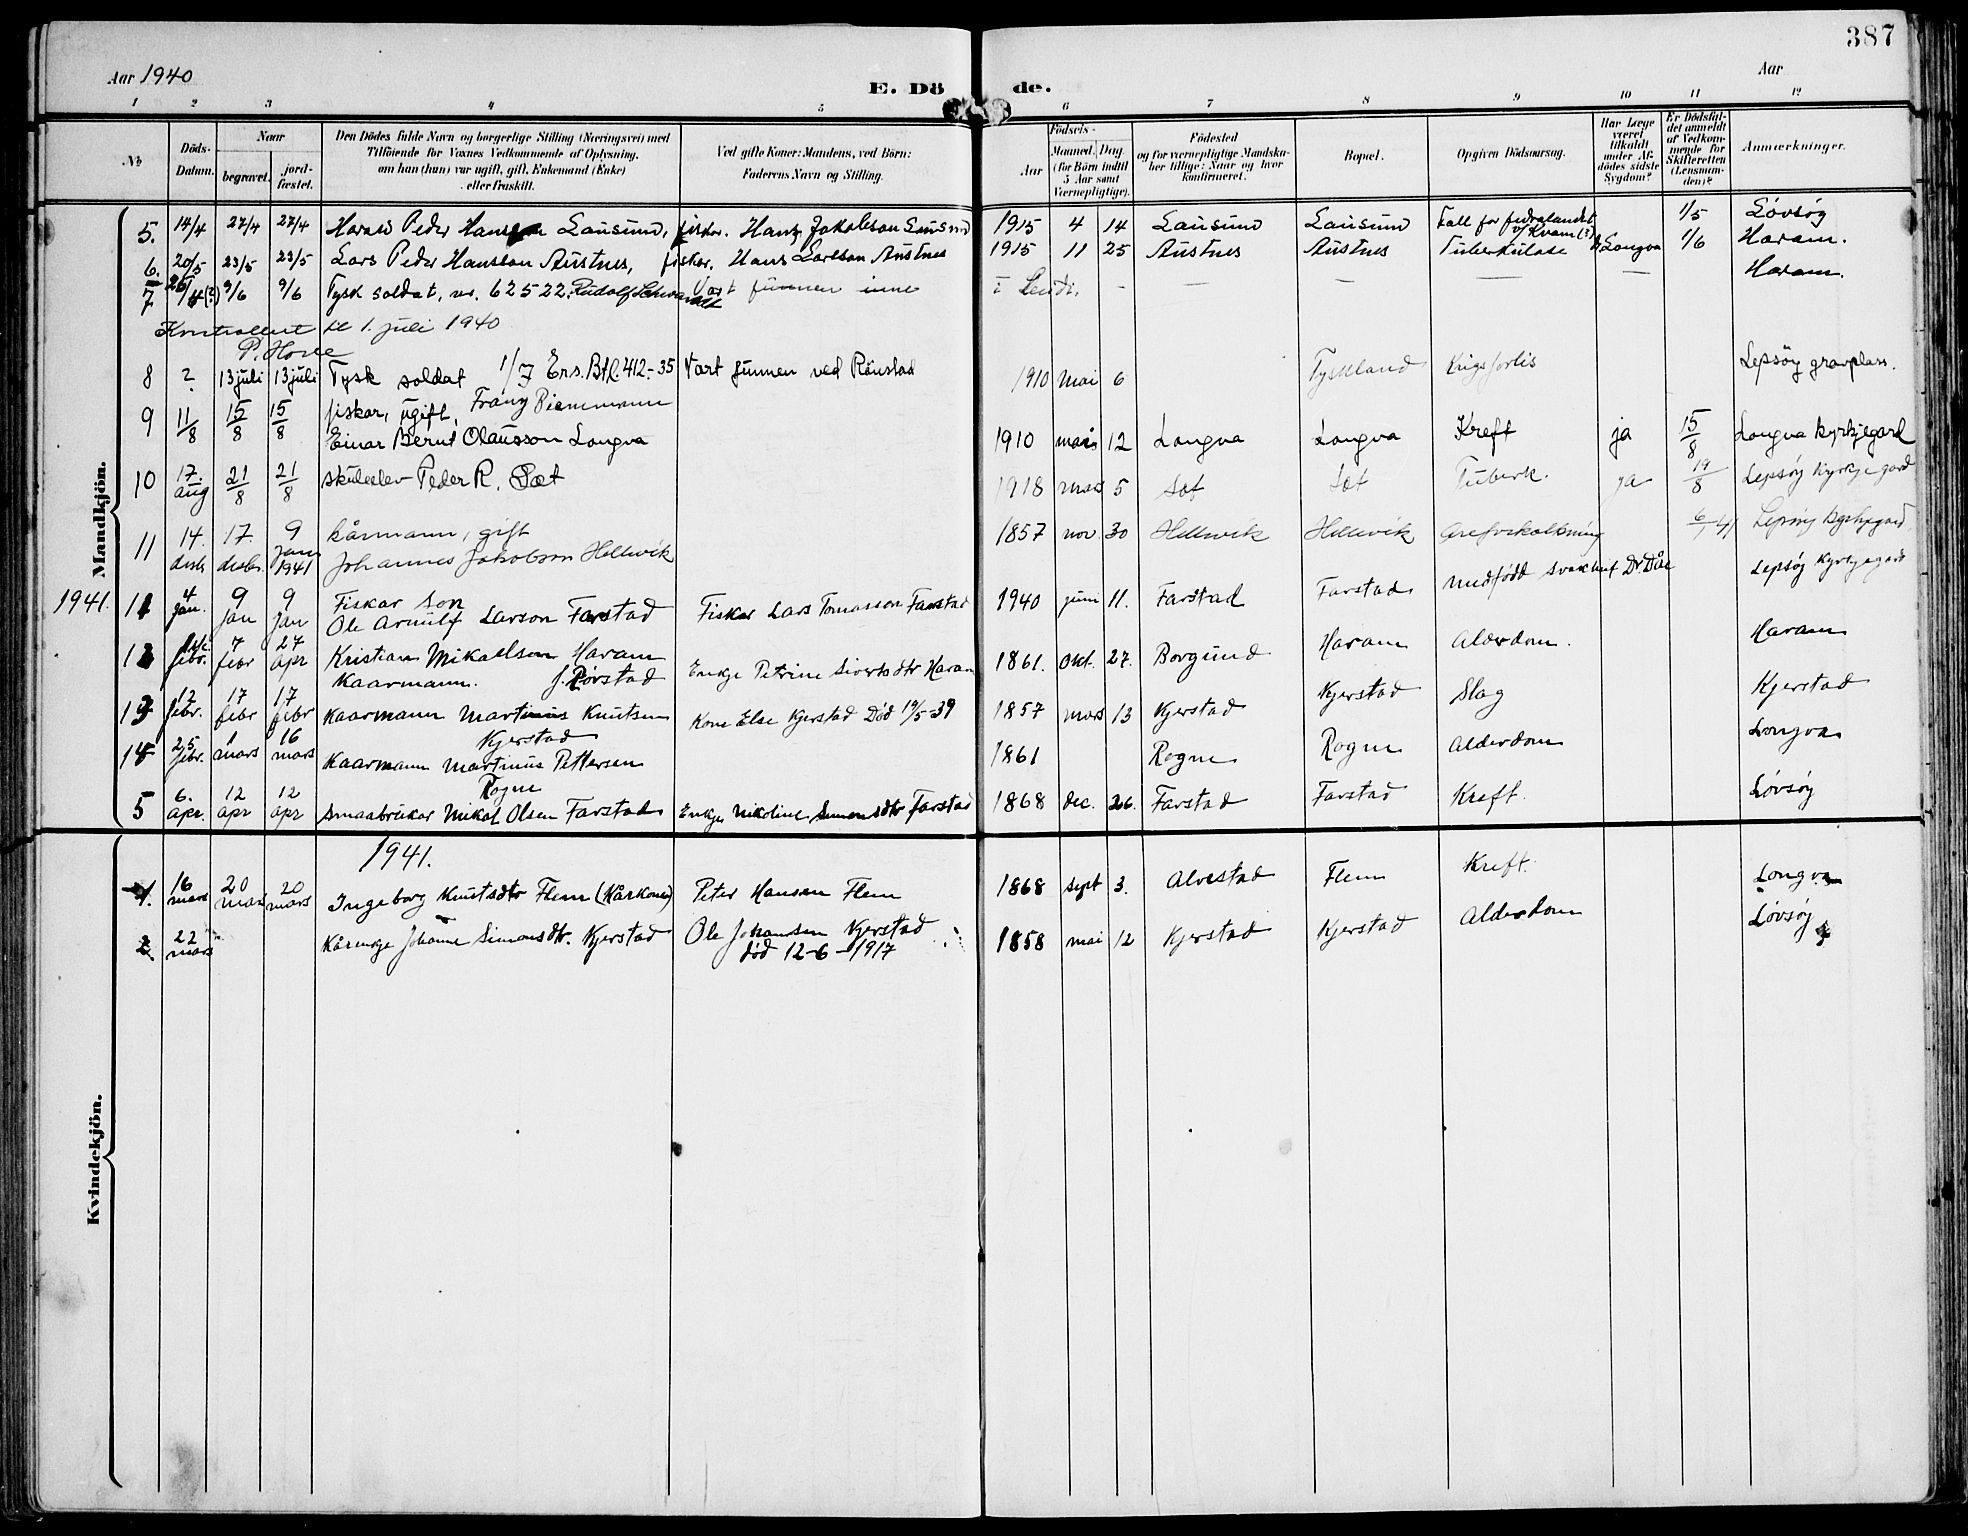 387
Aar 1940
E. Dö de.
Aar
1 2 3 4 5 6 7 8 9 10 11 12
No
Döds-Datum.
Naar
begravet.
jordfæstet.
Den Dödes fulde Navn og borgerlige Stilling (Næringsvei) med
Tilföiende for Voxnes Vedkommende af Oplysning,
om han (hun) var ugift, gift, Enkemand (Enke)
eller fraskilt.
Ved gifte Koner: Mandens, ved Börn:
Faderens Navn og Stilling.
Födsels-
Aar
Maaned. Dag.
(for Börn indtil
5 Aar samt
Værnepligtige).
Födested
og for værnepligtige Mandska-
ber tillige: Naar og hvor
konfirmeret.
Bopæl.
Opgiven Dödsaarsag.
Har Læge
været
tilkaldt
under Af-
dödes sidste
Sygdom?
Er Dödsfal-
det anmeldt
af Vedkom-
mende for
Skifteretten
(Lensman-
den)?
Anmærkninger.
Mandkjön.
5. 14/4 27/4 27/4 Harald Peder Hansen Lausund, fiskar. Hans Jakobson Lausund 1915 4 14 Lausund Lausund Fall for fedralandet v/ Kvam (?) 1/5 Lövsöy
6. 20/5 23/5 23/5 Lars Peder Hansson Austnes, fiskar. Hans Larsson Austnes 1915 11 25 Austnes Austnes Tuberkulose Longva 1/6 Haram.
7 26/4 (?) 9/6 9/6 Tysk soldat, nr. 62522. Rudolf Schwandt Vart funnen inne i Lendi. - — — Haram.
Kontrollert til 1. juli 1940
P. Hove
8 ? 13 juli 13 juli Tysk soldat 1/7 Ers. Btl. 412.-35 Vart funnen ved Rönstad 1910 mai 6 Tyskland Krigsforlis Lepsöy gravplass.
Franz Bienemann
9 11/8 15/8 15/8 fiskar, ugift,
Einar Bernt Olausson Longva 1910 mars 12 Longva Longva Kreft ja 15/8 Longva kyrkjegard
10 17. aug 21/8 21/8 skuleelev Peder R. Sæt 1918 mars 5 Sæt Sæt Tuberk. ja 19/8 Lepsöy kyrkjegard
11 14. desb. 17. desbr. 9 jan 1941 kårmann, gift
Johannes Jakobson Hellevik 1857 nov. 30 Hellevik Hellevik Areforkalkning 6/1 41 Lepsöy kyrkjegard
1941. 1 4 jan. 9 jan 9 jan Fiskar son
Ole Arnulf Larson Farstad Fiskar Lars Tomasson Farstad 1940 juni 11. Farstad Farstad medfødt svakhet Dr. Dåe Lepsöy kyrkjegard
2 febr. 7 febr 27 apr Kristian Mikaelson Haram
Kaarmann. f. Rörstad Enkje Petrine Sivertsdtr Haram 1861. Okt. 27. Borgund Haram Alderdom. Haram
3 12 febr. 17 febr 17 febr Kaarmann Martinus Knutsen
Kjerstad Kone Else Kjerstad Död 19/5-39 1857 mars 13 Kjerstad Kjerstad Slag Kjerstad
4 25 febr. 1 mars 16 mars Kaarmann Martinus Pettersen
Rogne 1861 Rogne Rogne Alderdom Longva
5 6. apr. 12 apr 12 apr Smaabrukar Mikal Olsen Farstad Enkje Nikoline Simonsdtr Farstad 1868 dec. 26. Farstad Farstad Kreft. Lövsöy
Kvindekjön.
1941.
1. 16 mars 20 mars 20 mars Ingeborg Knutsdtr Flem (Kårkone) Peter Hansen Flem 1868 sept 3. Alvestad Flem Kreft. Longva
2. 22 mars Kårenkje Johanne Simonsdtr. Kjerstad Ole Johansen Kjerstad
död 12-6-1917 1858 mai 12 Kjerstad Kjerstad Alderdom Lövsöy